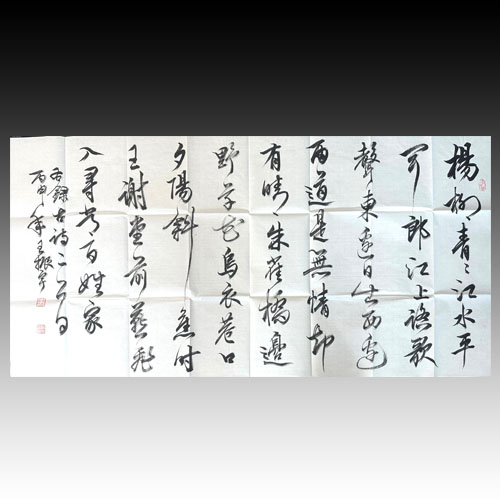 楊柳青〻江水平
聞郎江上踏歌
聲東邊日出西邊
雨道是無情却
有晴〻朱雀橋邊
野草花烏衣巷口
夕陽斜舊時
王謝堂前燕飛
入尋常百姓家
右録古詩二首
丙申年王振